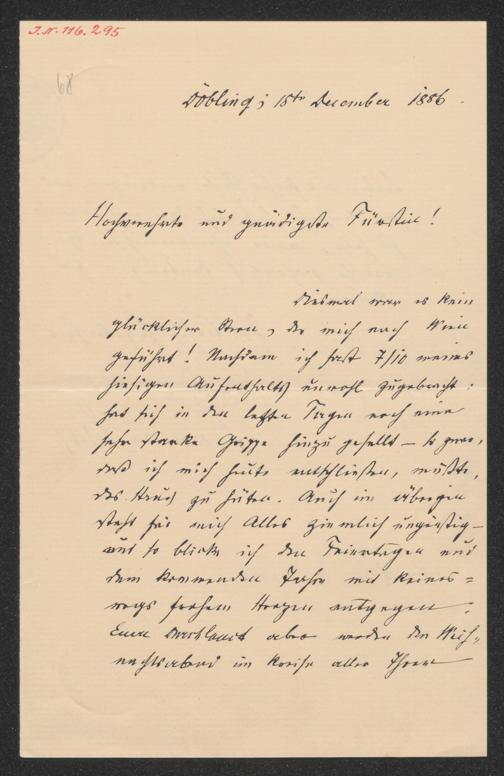 J.N. 116.295
68
Döbling; 18tn December 1886.
Hochverehrte und gnädigste Fürstin!
Diesmal war es kein
glücklicher Stern, der mich nach Wien
geführt! Nachdem ich fast 7/10 meines
hiesigen Aufenthalts unwohl zugebracht:
hat sich in den letzten Tagen noch eine
sehr starke Grippe hinzu gesellt – so zwar,
daß ich mich heute entschließen, mußte,
das Haus zu hüten. Auch im Übrigen
steht für mich Alles ziemlich ungünstig –
und so blicke ich den Feiertagen und
dem kommenden Jahre mit keines=
wegs frohem Herzen entgegen.
Euer Durchlaucht aber werden den Weih=
nachtsabend im Kreise aller Ihrer